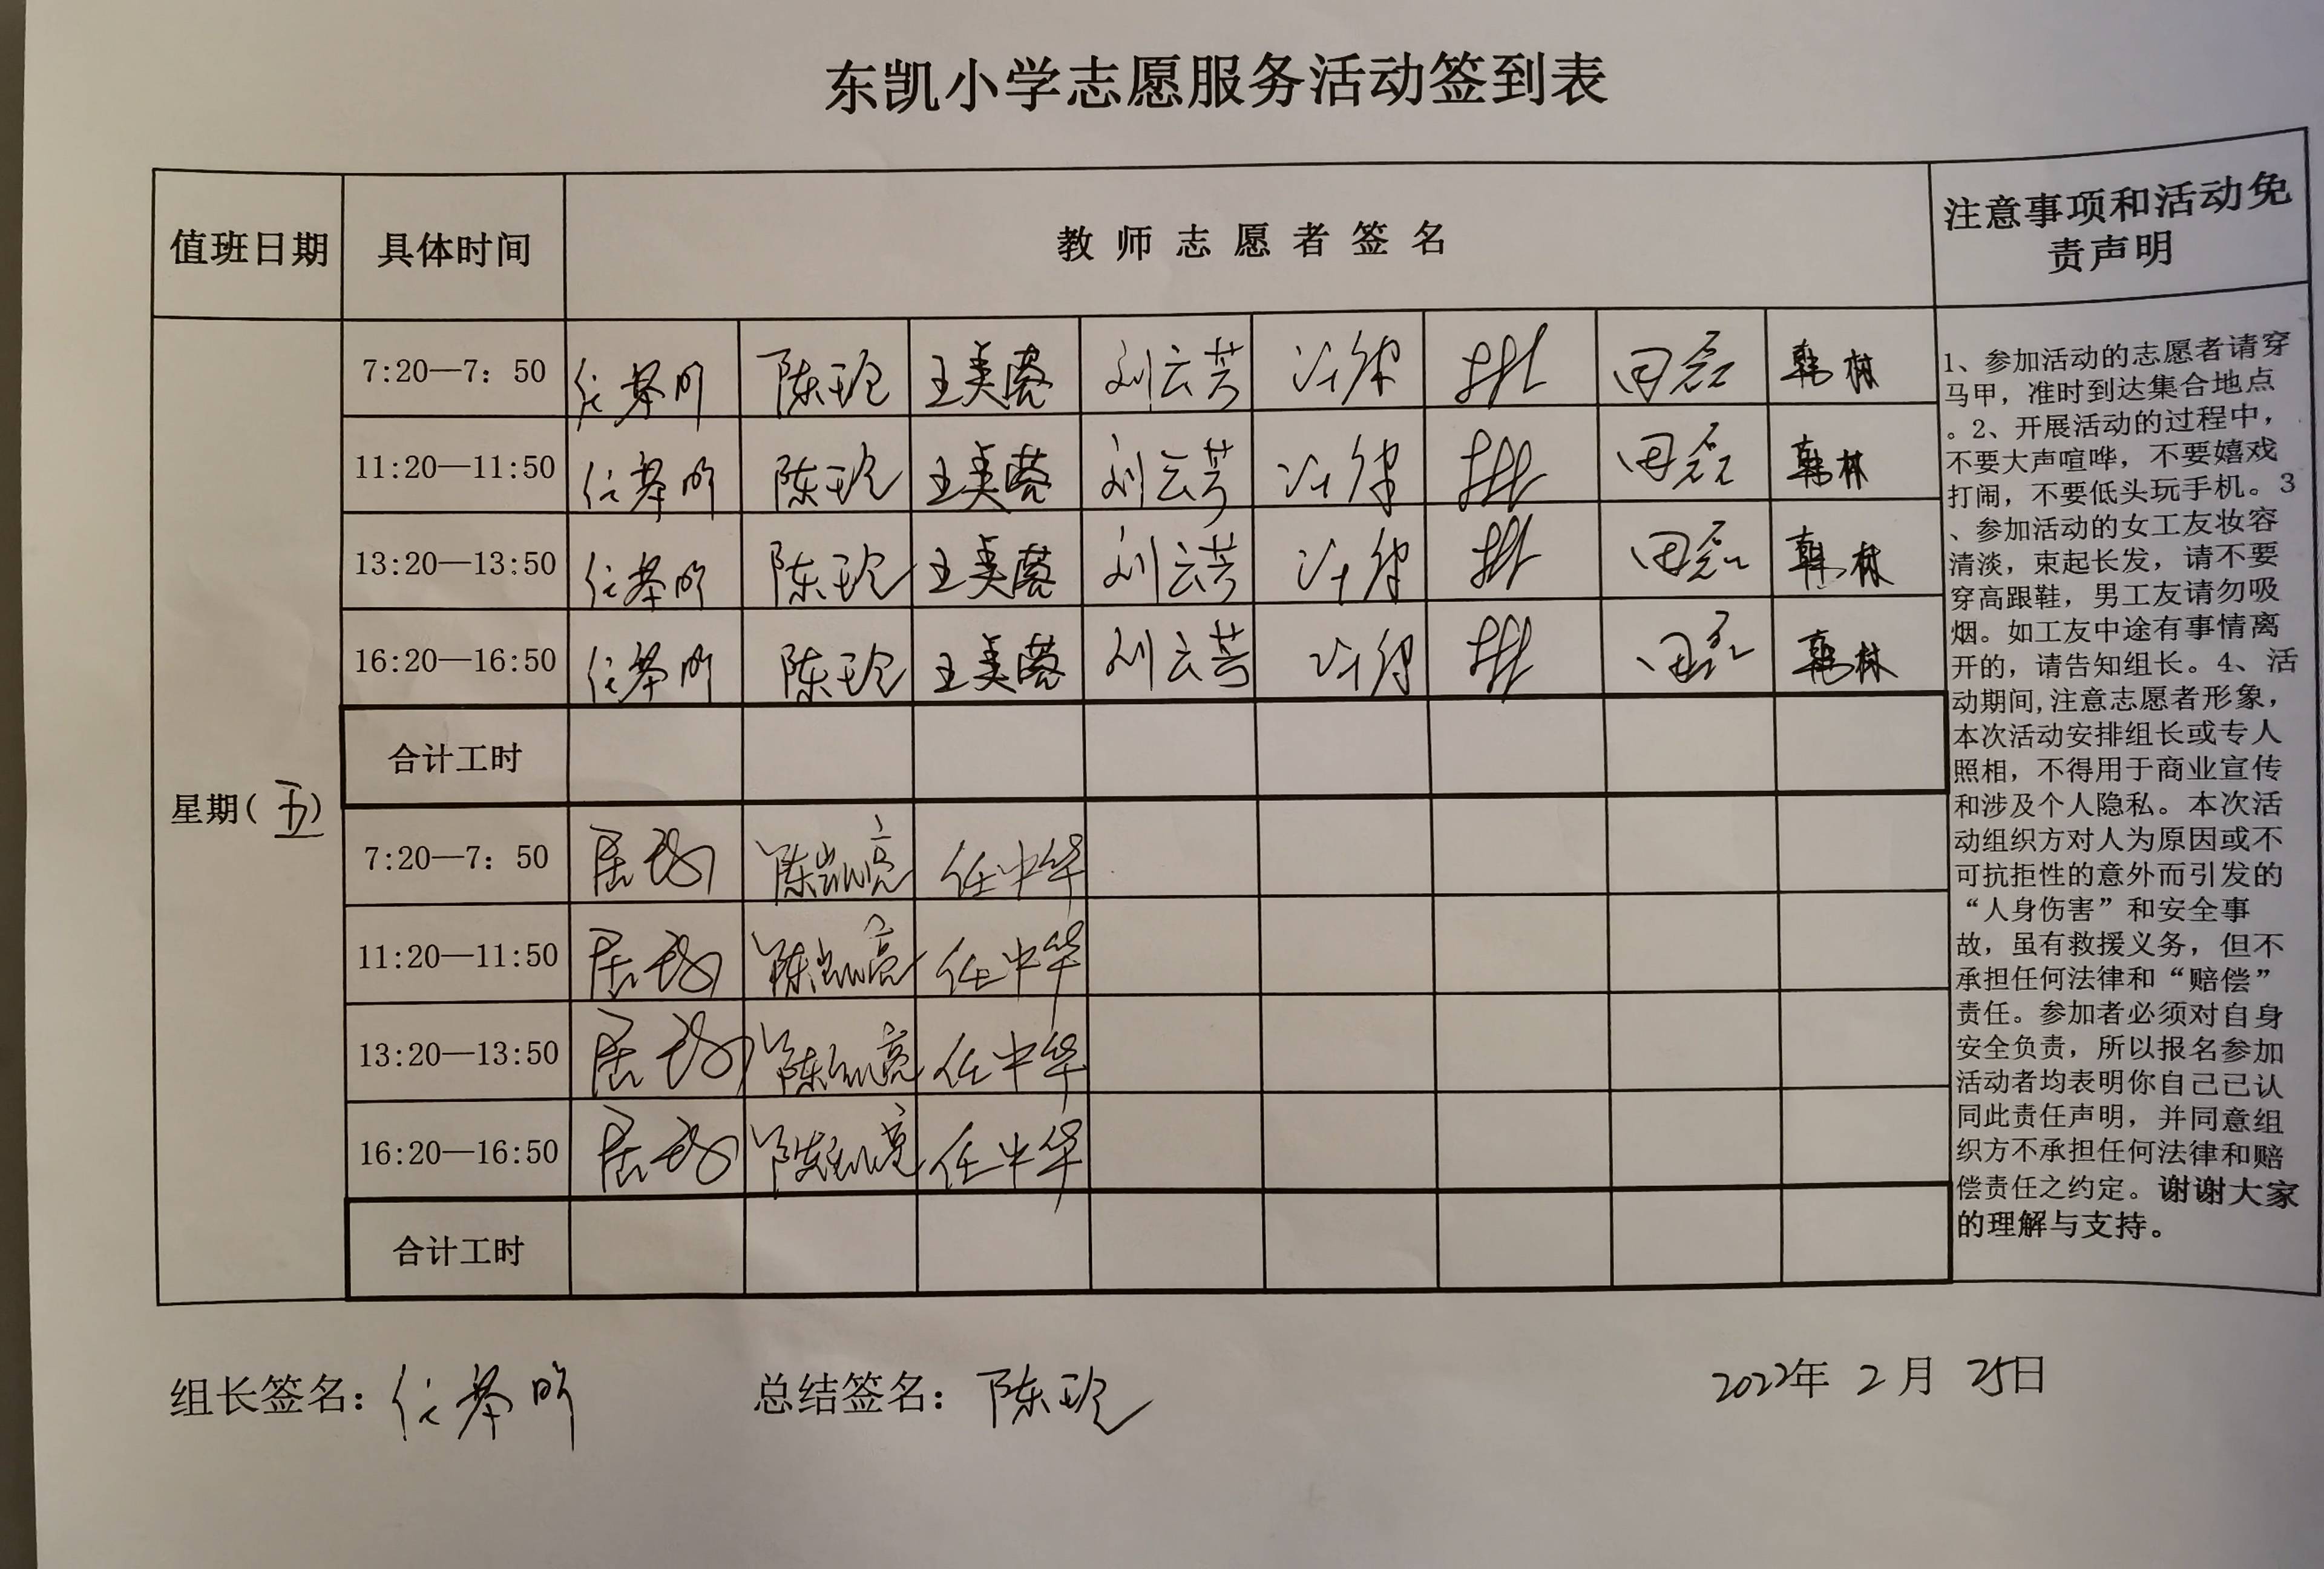 东凯小学志愿服务活动签到表
值班日期 具体时间 教师志愿者签名 注意事项和活动免
责声明
7:20—7: 50 陈玲 王美蓉 刘云芳 田磊 韩林
11:20—11:50 陈玲 王美蓉 刘云芳 田磊 韩林
13:20—13:50 陈玲 王美蓉 刘云芳 田磊 韩林
16:20—16:50 陈玲 王美蓉 刘云芳 田磊 韩林
合计工时
星期(五)
7:20—7: 50 陈凯亮 任中华
11:20—11:50 陈凯亮 任中华
13:20—13:50 陈凯亮 任中华
16:20—16:50 陈凯亮 任中华
合计工时
1、参加活动的志愿者请穿
马甲，准时到达集合地点
。2、开展活动的过程中，
不要大声喧哗，不要嬉戏
打闹，不要低头玩手机。3
、参加活动的女工友妆容
清淡，束起长发，请不要
穿高跟鞋，男工友请勿吸
烟。如工友中途有事情离
开的，请告知组长。4、活
动期间,注意志愿者形象，
本次活动安排组长或专人
照相，不得用于商业宣传
和涉及个人隐私。本次活
动组织方对人为原因或不
可抗拒性的意外而引发的
“人身伤害”和安全事
故，虽有救援义务，但不
承担任何法律和“赔偿”
责任。参加者必须对自身
安全负责，所以报名参加
活动者均表明你自己已认
同此责任声明，并同意组
织方不承担任何法律和赔
偿责任之约定。谢谢大家
的理解与支持。
组长签名： 总结签名：陈玲 2022年 2月 25日